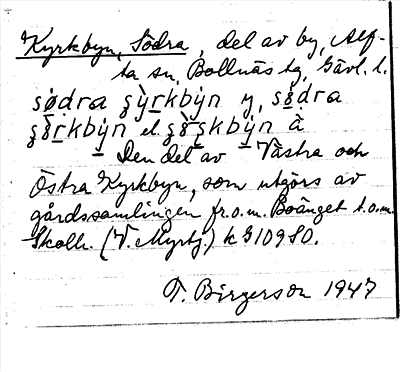 Kyrkbyn, Södra, del av by, Alf-
ta sn, Bollnäs tg, Gävl. l.
södra y, södra
el. å
Den del av Västra och
Östra Kyrkbyn, som utgörs av
gårdssamlingen fr.o.m. Boänget t.o.m.
Skolh. (V. Myrtj.) k G 109 80.
T. Birgerson 1947